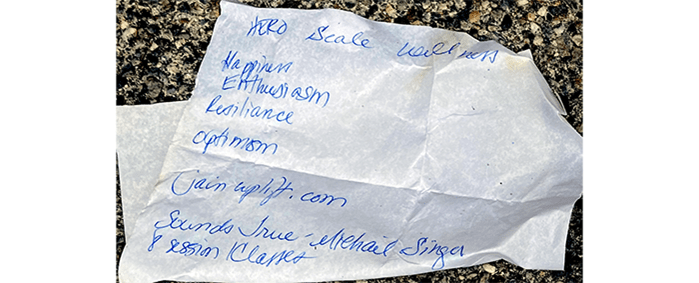 HERO Scale wellness
Happiness
Enthusiasm
Resiliance
optimism
join uplift.com
Sounds True - Michael Singer
8 session Classes